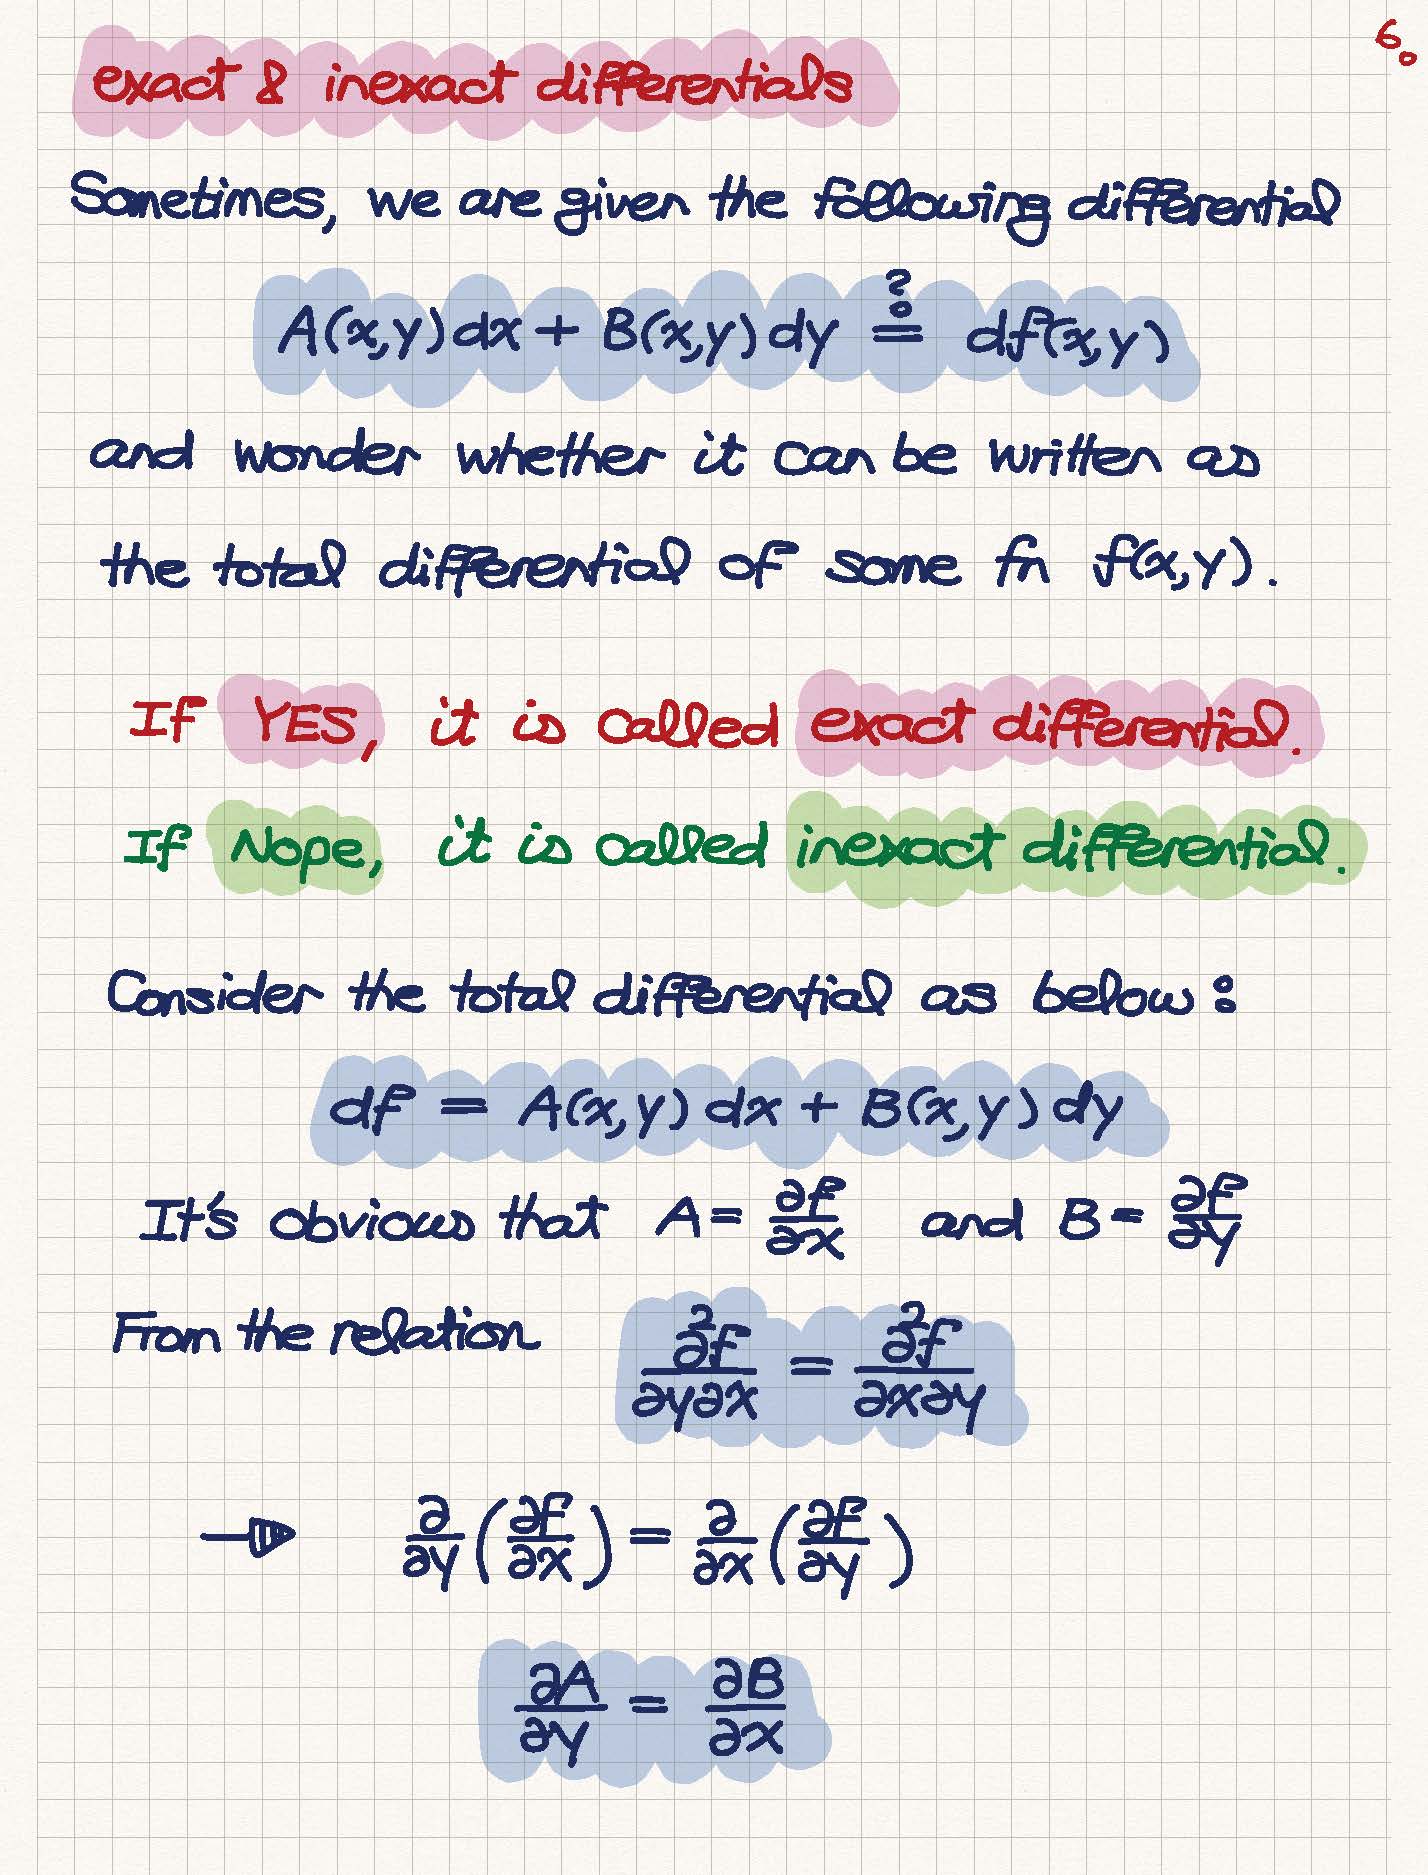 6.
exact & inexact differentials
Sometimes, we are given the following differential
A(x,y)dx + B(x,y)dy ≟ df(x,y)
and wonder whether it can be written as
the total differential of some fn f(x,y).
If YES, it is called exact differential.
If Nope, it is called inexact differential.
Consider the total differential as below:
df = A(x,y)dx + B(x,y)dy
It's obvious that A = ∂f/∂x and B = ∂f/∂y
From the relation ∂²f/∂y∂x = ∂²f/∂x∂y
→ ∂/∂y(∂f/∂x) = ∂/∂x(∂f/∂y)
∂A/∂y = ∂B/∂x